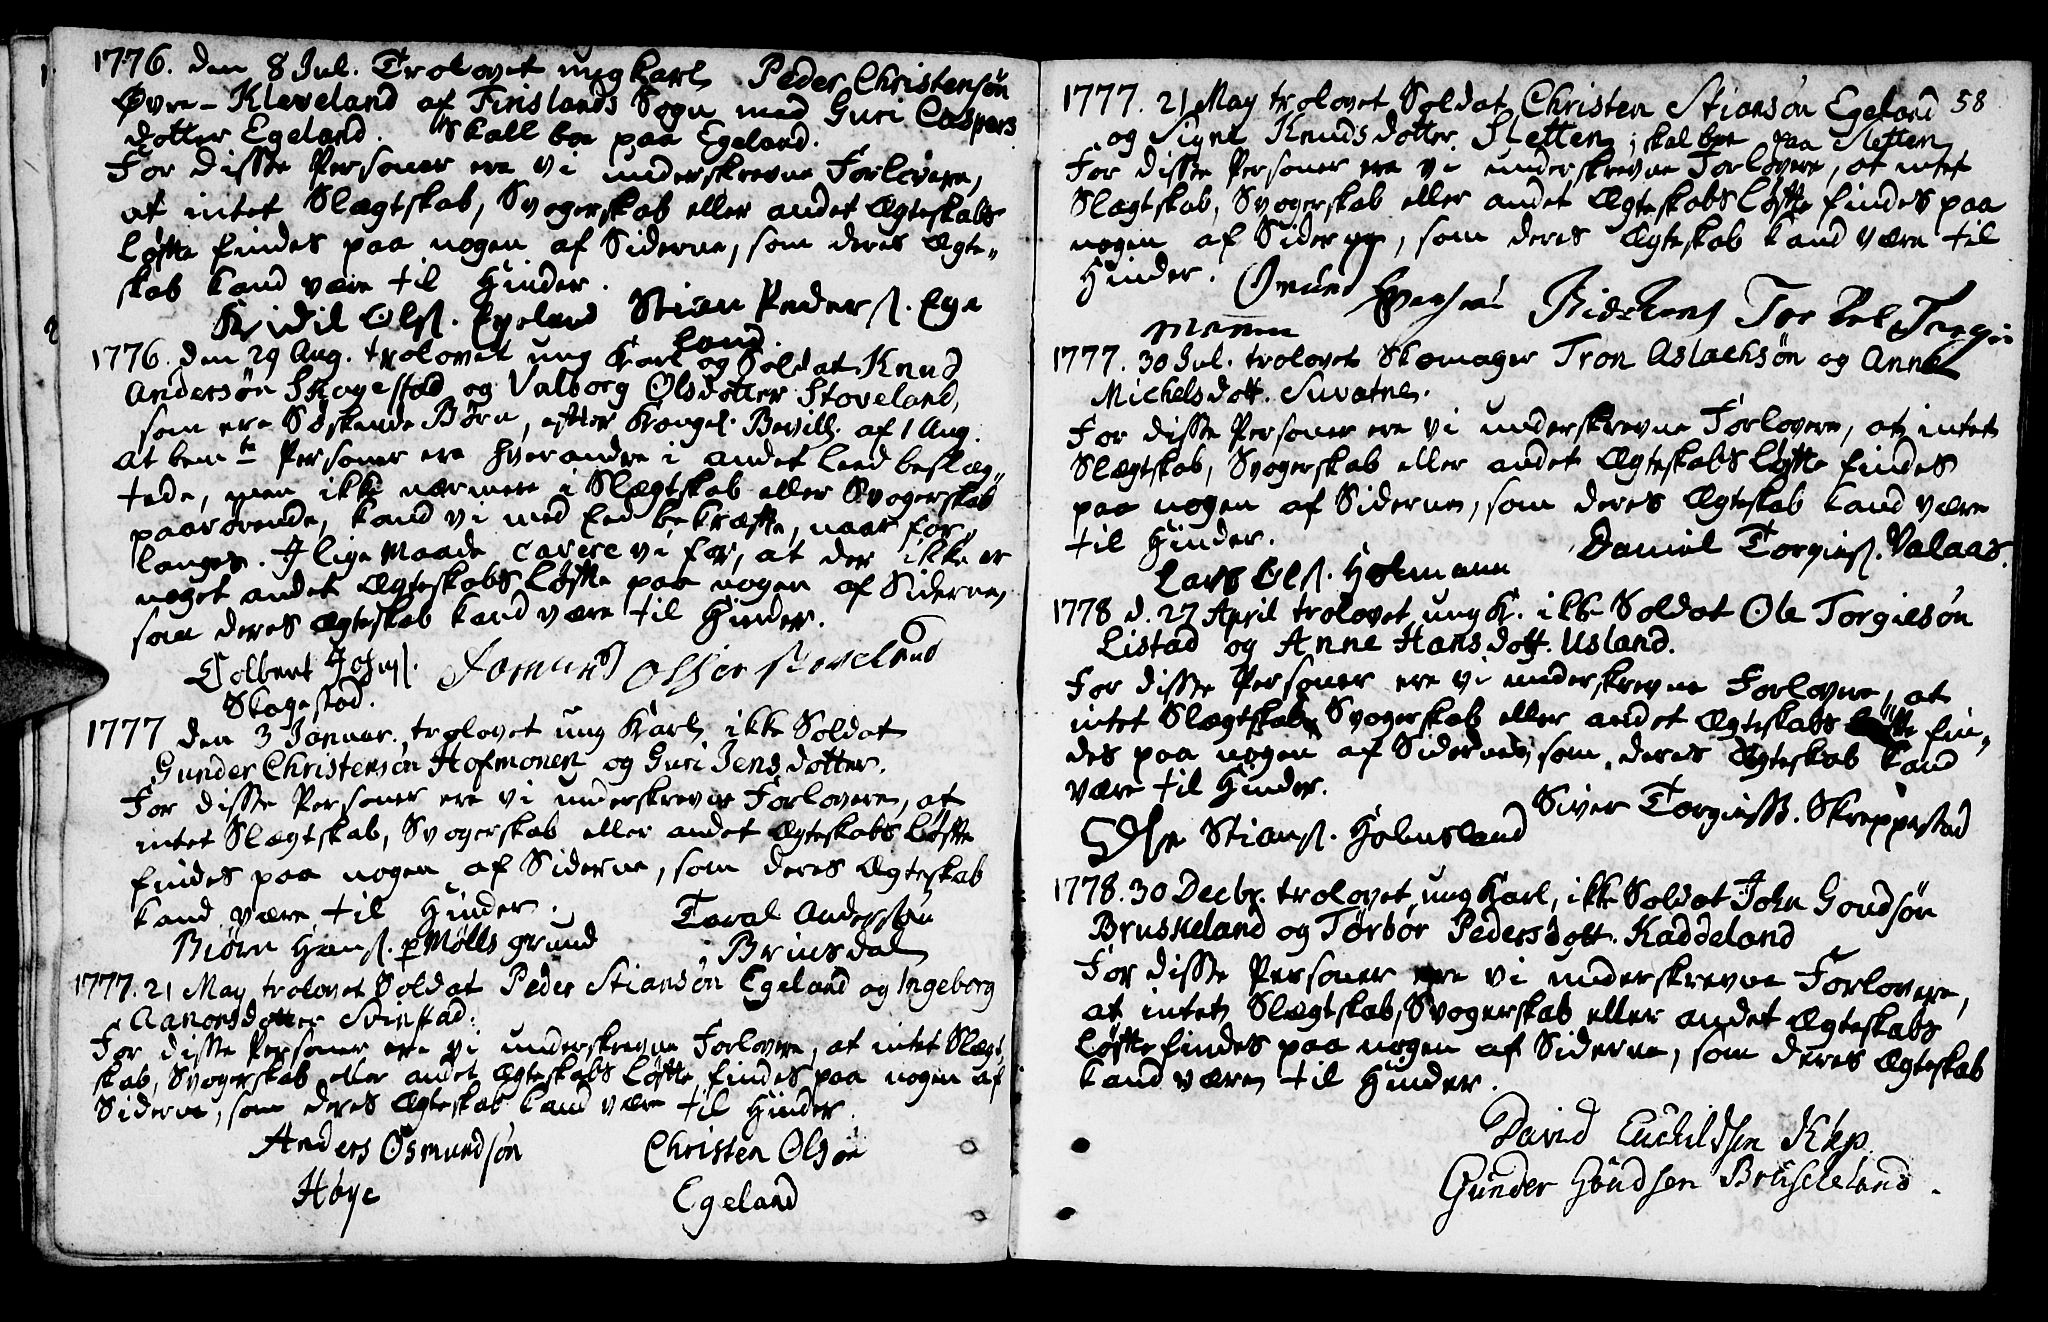 1776. den 8 Jul. Trolovet ung karl Peder Christensøn
Øvre-Kleveland af Finslands Sogn med Guri Caspers
dotter Egeland. Skall boe paa Egeland.
For disse Personer ere vi underskrevne Forlovere,
at intet Slægtskab, Svogerskab eller andet Ægteskabs
Løfte findes paa nogen af Siderne, som deres Ægte-
skab kand være til Hinder.
Olss. Egeland Stian Pederss. Ege
land.
1776. den 29 Aug. trolovet ung Karl og Soldat Knud
Andersøn Skagestad og Valborg Olsdotter Stoveland,
som ere Søskende Børn, efter Kongel. Bevill. af 1 Aug.
At bemte Personer ere hverandre i andet Leed beslæg-
tede, men ikke nærmere i Slægtskab eller Svogerskab
paarørende, kand vi med Eed bekræfte, naar for-
langes. I lige Maade cavere vi for, at der ikke er
noget andet Ægteskabs Løfte paa nogen af Siderne,
som deres Ægteskab kand være til Hinder.
Tolbert Johnss.
Skagestad.
1777 den 3 Januar. trolovet ung Karl, ikke Soldat
Gunder Christensøn Hofmonen og Guri Jens dotter.
For disse Personer ere vi underskrevne Forlovere, at
intet Slægtskab, Svogerskab eller andet Ægteskabs Løfte
findes paa nogen af Siderne, som deres Ægteskab
kand være til Hinder.
Taral Andersøn
Biørn Hanss. Møllsgrund Brinsdal
1777. 21 May trolovet Soldat Peder Stiansøn Egeland og Ingeborg
Aanonsdotter Svinstad.
For disse Personer ere vi underskrevne Forlovere, at intet Slægt-
skab, Svogerskab eller andet Ægteskabs Løfte findes paa nogen af
Siderne, som deres Ægteskab kand være til Hinder.
Anders Osmundsøn Christen Olsøn
Høye Egeland
58
1777. 21 May trolovet Soldat Christen Stiansøn Egeland
og Signe Knudsdotter Sletten; skal boe paa Sletten
For disse Personer ere vi underskrevne Forlovere, at intet
Slægtskab, Svogerskab eller andet Ægteskabs Løfte findes paa
nogen af Siderne, som deres Ægteskab kand være til
Hinder.
1777. 30 Jul. trolovet Skomager Tron Aslachsøn og Anne
Michelsdott. Suvatne.
For disse Personer ere vi underskrevne Forlovere, at intet
Slægtskab, Svogerskab eller andet Ægteskabs Løfte findes
paa nogen af Siderne, som deres Ægteskab kand være
til Hinder. Daniel Torgiess. Valaas.
Lars Olss. Holmann
1778 d. 27 April trolovet ung K. ikke Soldat Ole Torgielsøn
Listad og Anne Hansdott. Usland.
For disse Personer ere vi underskrevne Forlovere, at
intet Slægtskab, Svogerskab eller andet Ægteskabs Løfte fin-
des paa nogen af Siderne, som deres Ægteskab kand
være til Hinder.
Siver Torgiess. Skreppestad
Ole Stianss. Holmsland
1778. 30 Decbr. trolovet ung Karl, ikke Soldat John Goudsøn
Bruskeland og Tørbør Pedersdott. Kaddeland
For disse Personer ere vi underskrevne Forlovere,
at intet Slægtskab, Svogerskab eller andet Ægteskabs
Løfte findes paa nogen af Siderne, som deres Ægteskab
kand være til Hinder.
David
Gunder Goudsen Bruscheland.